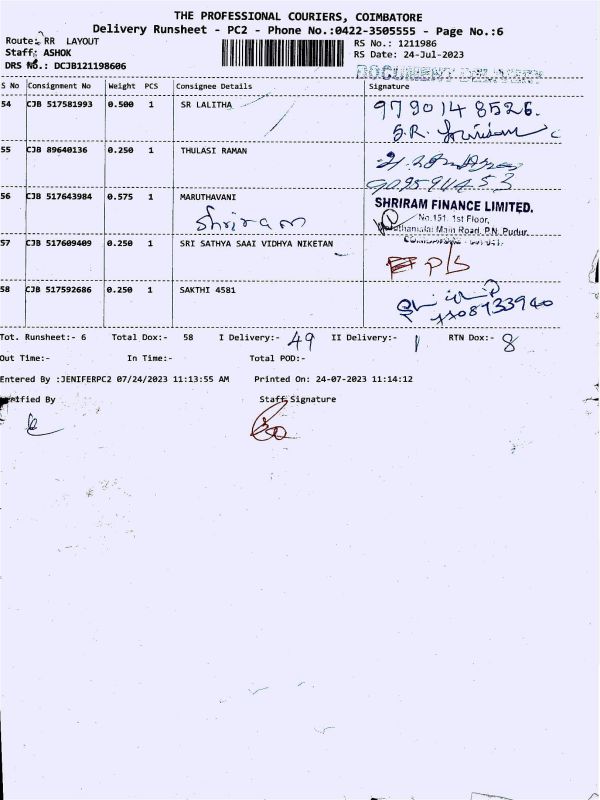 THE PROFESSIONAL COURIERS, COIMBATORE
Delivery Runsheet - PC2 - Phone No.:0422-3505555 - Page No.:6
Route: RR LAYOUT
RS No.: 1211986
Staff: ASHOK
RS Date: 24-Jul-2023
DRS No.: DCJB121198606
DOCUMENT DELIVERY
S No Consignment No Weight PCS Consignee Details Signature
54 CJB 517581993 0.500 1 SR LALITHA 9790148526.
S.R.
55 CJB 89640136 0.250 1 THULASI RAMAN
56 CJB 517643984 0.575 1 MARUTHAVANI SHRIRAM FINANCE LIMITED.
Shriram No.151, 1st Floor,
Main Road, P.N. Pudur,
57 CJB 517609409 0.250 1 SRI SATHYA SAAI VIDHYA NIKETAN
58 CJB 517592686 0.250 1 SAKTHI 4581
Tot. Runsheet:- 6 Total Dox:- 58 I Delivery:- 49 II Delivery:- 1 RTN Dox:- 8
Out Time:- In Time:- Total POD:-
Entered By :JENIFERPC2 07/24/2023 11:13:55 AM Printed On: 24-07-2023 11:14:12
Verified By Staff Signature